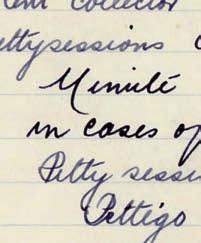 ent collector
ettysessions
Minité
in cases of
Petty sessi
Pettigo